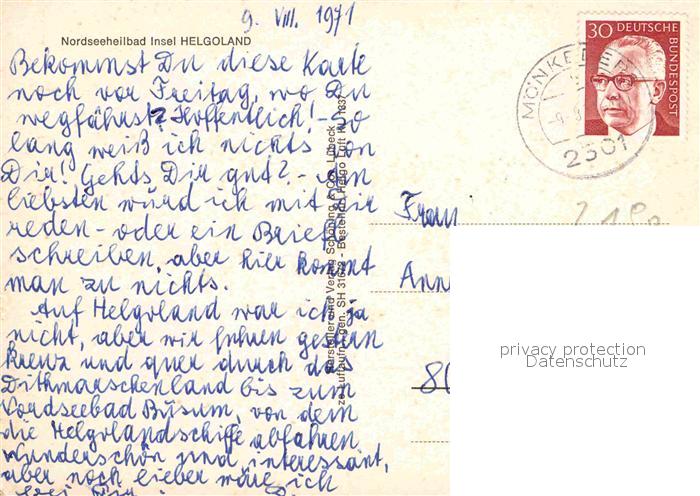 9. VIII. 1971
Nordseeheilbad Insel HELGOLAND
Bekommst Du diese Karte
noch vor Freitag, wo Du
wegfährst? Hoffentlich! - So
lang weiß ich nichts von
Dir! Gehts Dir gut? - Am
liebsten würd ich mit Dir
reden - oder ein Brief
schreiben, aber hier kommt
man zu nichts.
Auf Helgoland war ich ja
nicht, aber wir fuhren gestern
kreuz und quer durch das
Dithmarschenland bis zum
Nordseebad Büsum, von dem
die Helgolandschiffe abfahren
Wunderschön und interessant,
aber noch lieber wäre ich
bei Dir
Hersteller und Verlag Schöning & Co., Lübeck
Luftaufn. - gen. SH 316/3 - Bestell-Nr. Helgo Luft KN 1337
30 DEUTSCHE
BUNDESPOST
2301
Frau
Ann
80
privacy protection
Datenschutz